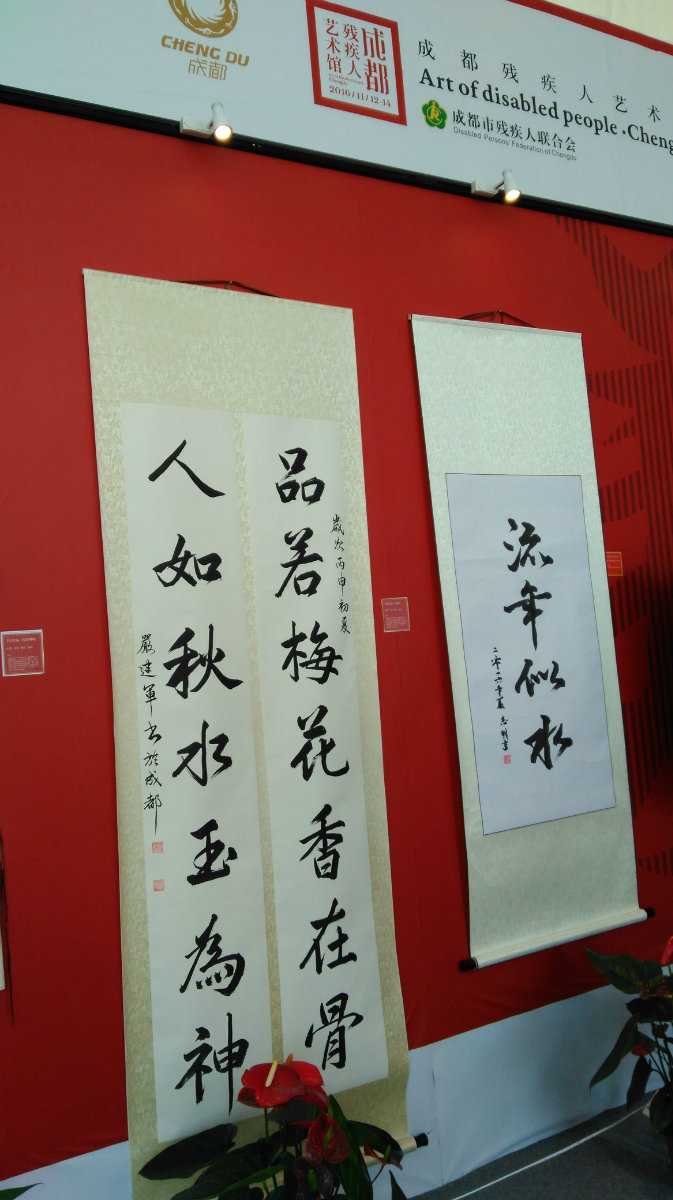 CHENG DU
成都
成都
残疾人
艺术馆
2016/11/12-14
成都残疾人艺术
Art of disabled people · Cheng
成都市残疾人联合会
Disabled Persons' Federation of Chengdu
歲次丙申初夏
品若梅花香在骨
人如秋水玉為神
嚴建軍書於成都
流年似水
二零一六年夏